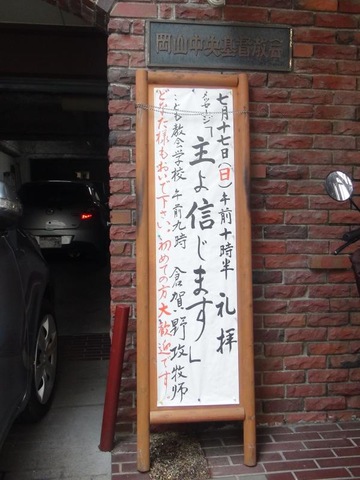 岡山中央基督教会
七月十七日(日)午前十時半 礼拝
メッセージ「主よ信じます」
こども教会学校 午前九時 倉賀野 牧師
どなた様もおいで下さい。初めての方大歓迎です。